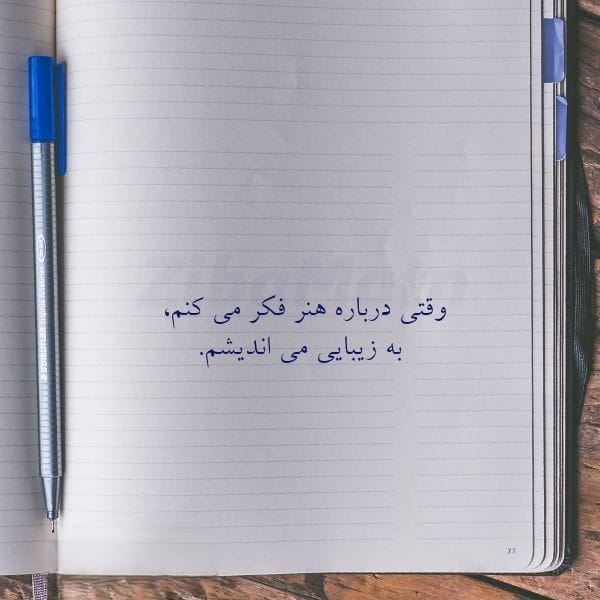 ZibaMatn
وقتی درباره هنر فکر می کنم،
به زیبایی می اندیشم.
77